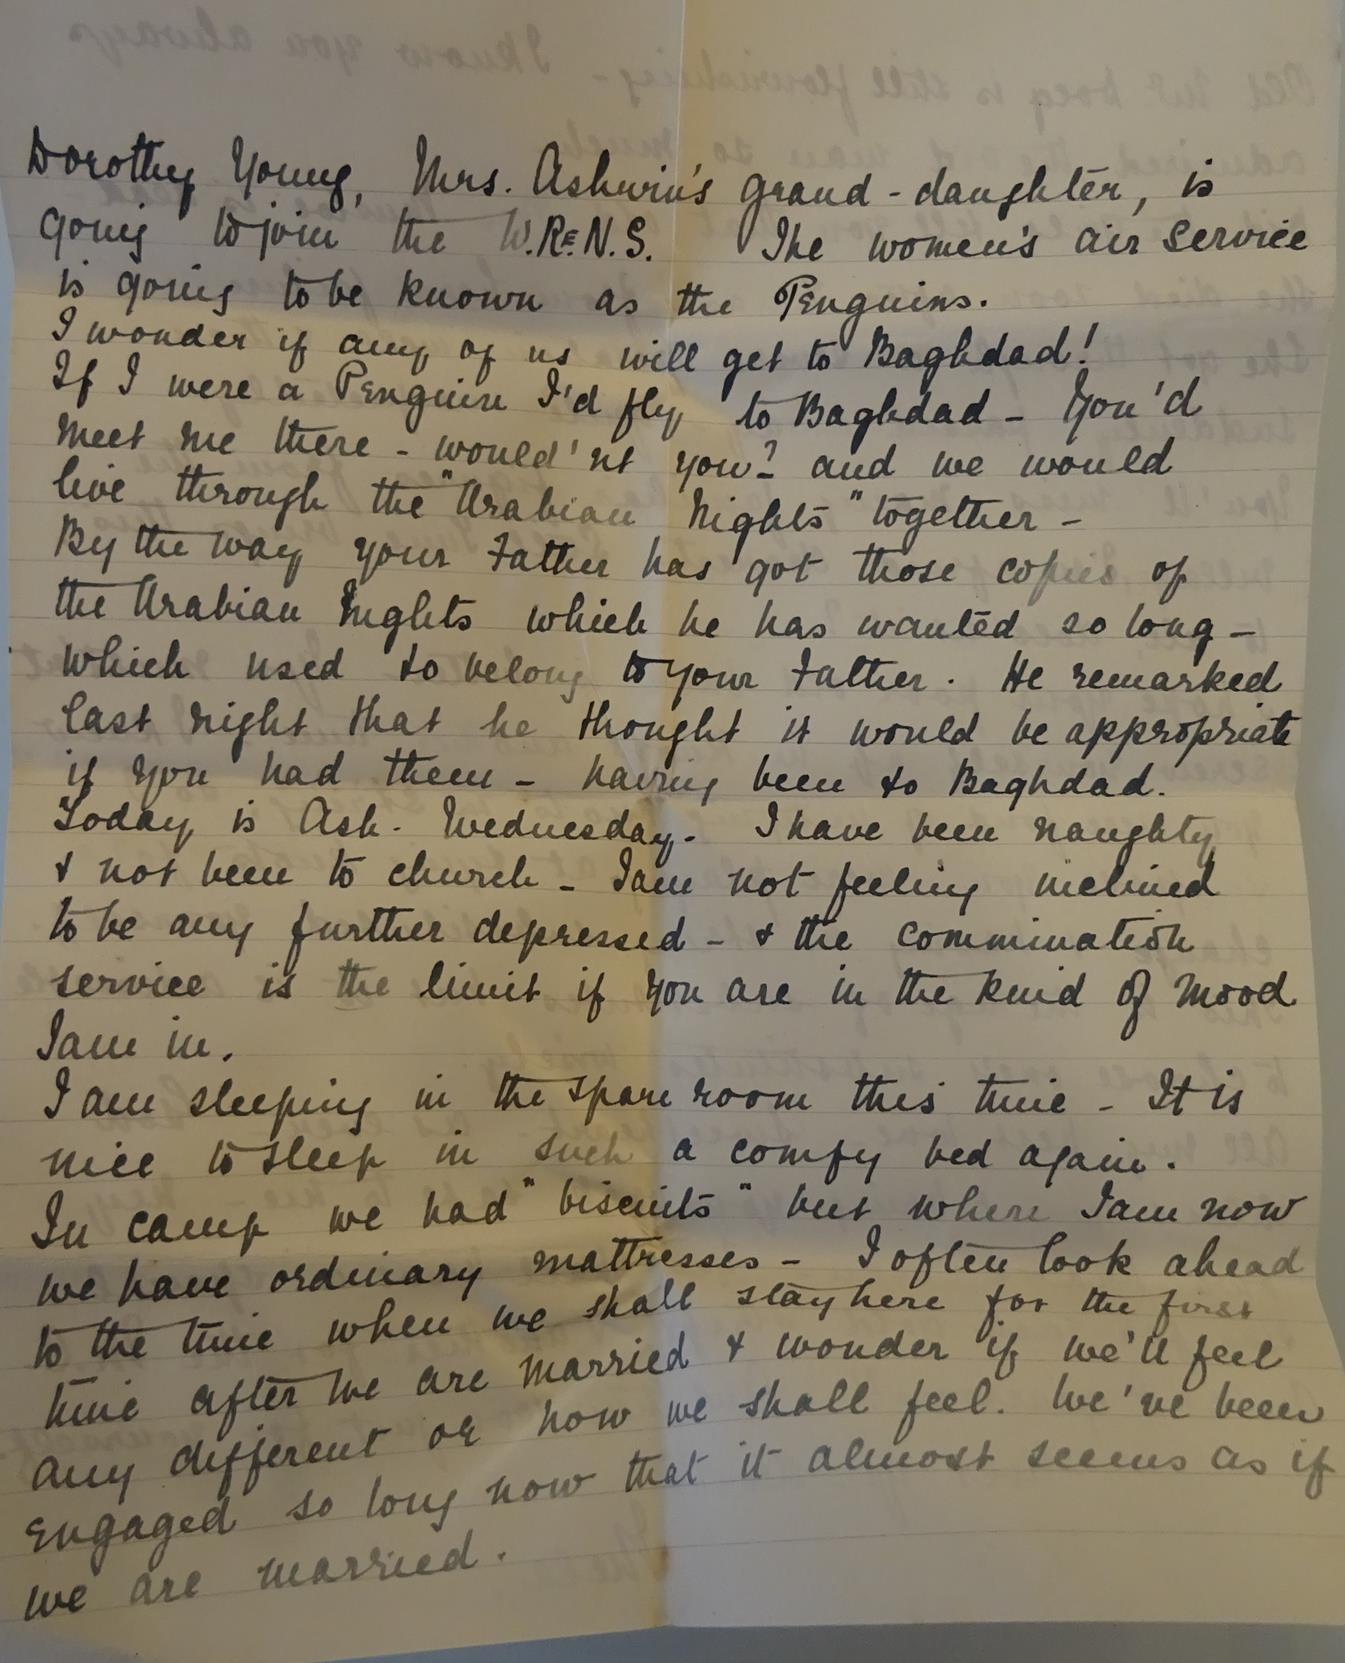 Dorothy Young, Mrs. Ashwin's grand-daughter, is
going to join the W.R.E.N.S. The women's air service
is going to be known as the Penguins.
I wonder if any of us will get to Baghdad!
If I were a Penguin I'd fly to Baghdad - You'd
meet me there - would'nt you? and we would
live through the "Arabian Nights" together -
By the way your Father has got those copies of
the Arabian Nights which he has wanted so long -
which used to belong to your Father. He remarked
last night that he thought it would be appropriate
if you had them - having been to Baghdad.
Today is Ash. Wednesday. I have been naughty
& not been to church - I am not feeling inclined
to be any further depressed - & the commination
service is the limit if you are in the kind of mood
I am in.
I am sleeping in the spare room this time - It is
nice to sleep in such a comfy bed again.
In camp we had "biscuits" but where I am now
we have ordinary mattresses - I often look ahead
to the time when we shall stay here for the first
time after we are married & wonder if we'll feel
any different or how we shall feel. We've been
engaged so long now that it almost seems as if
we are married.